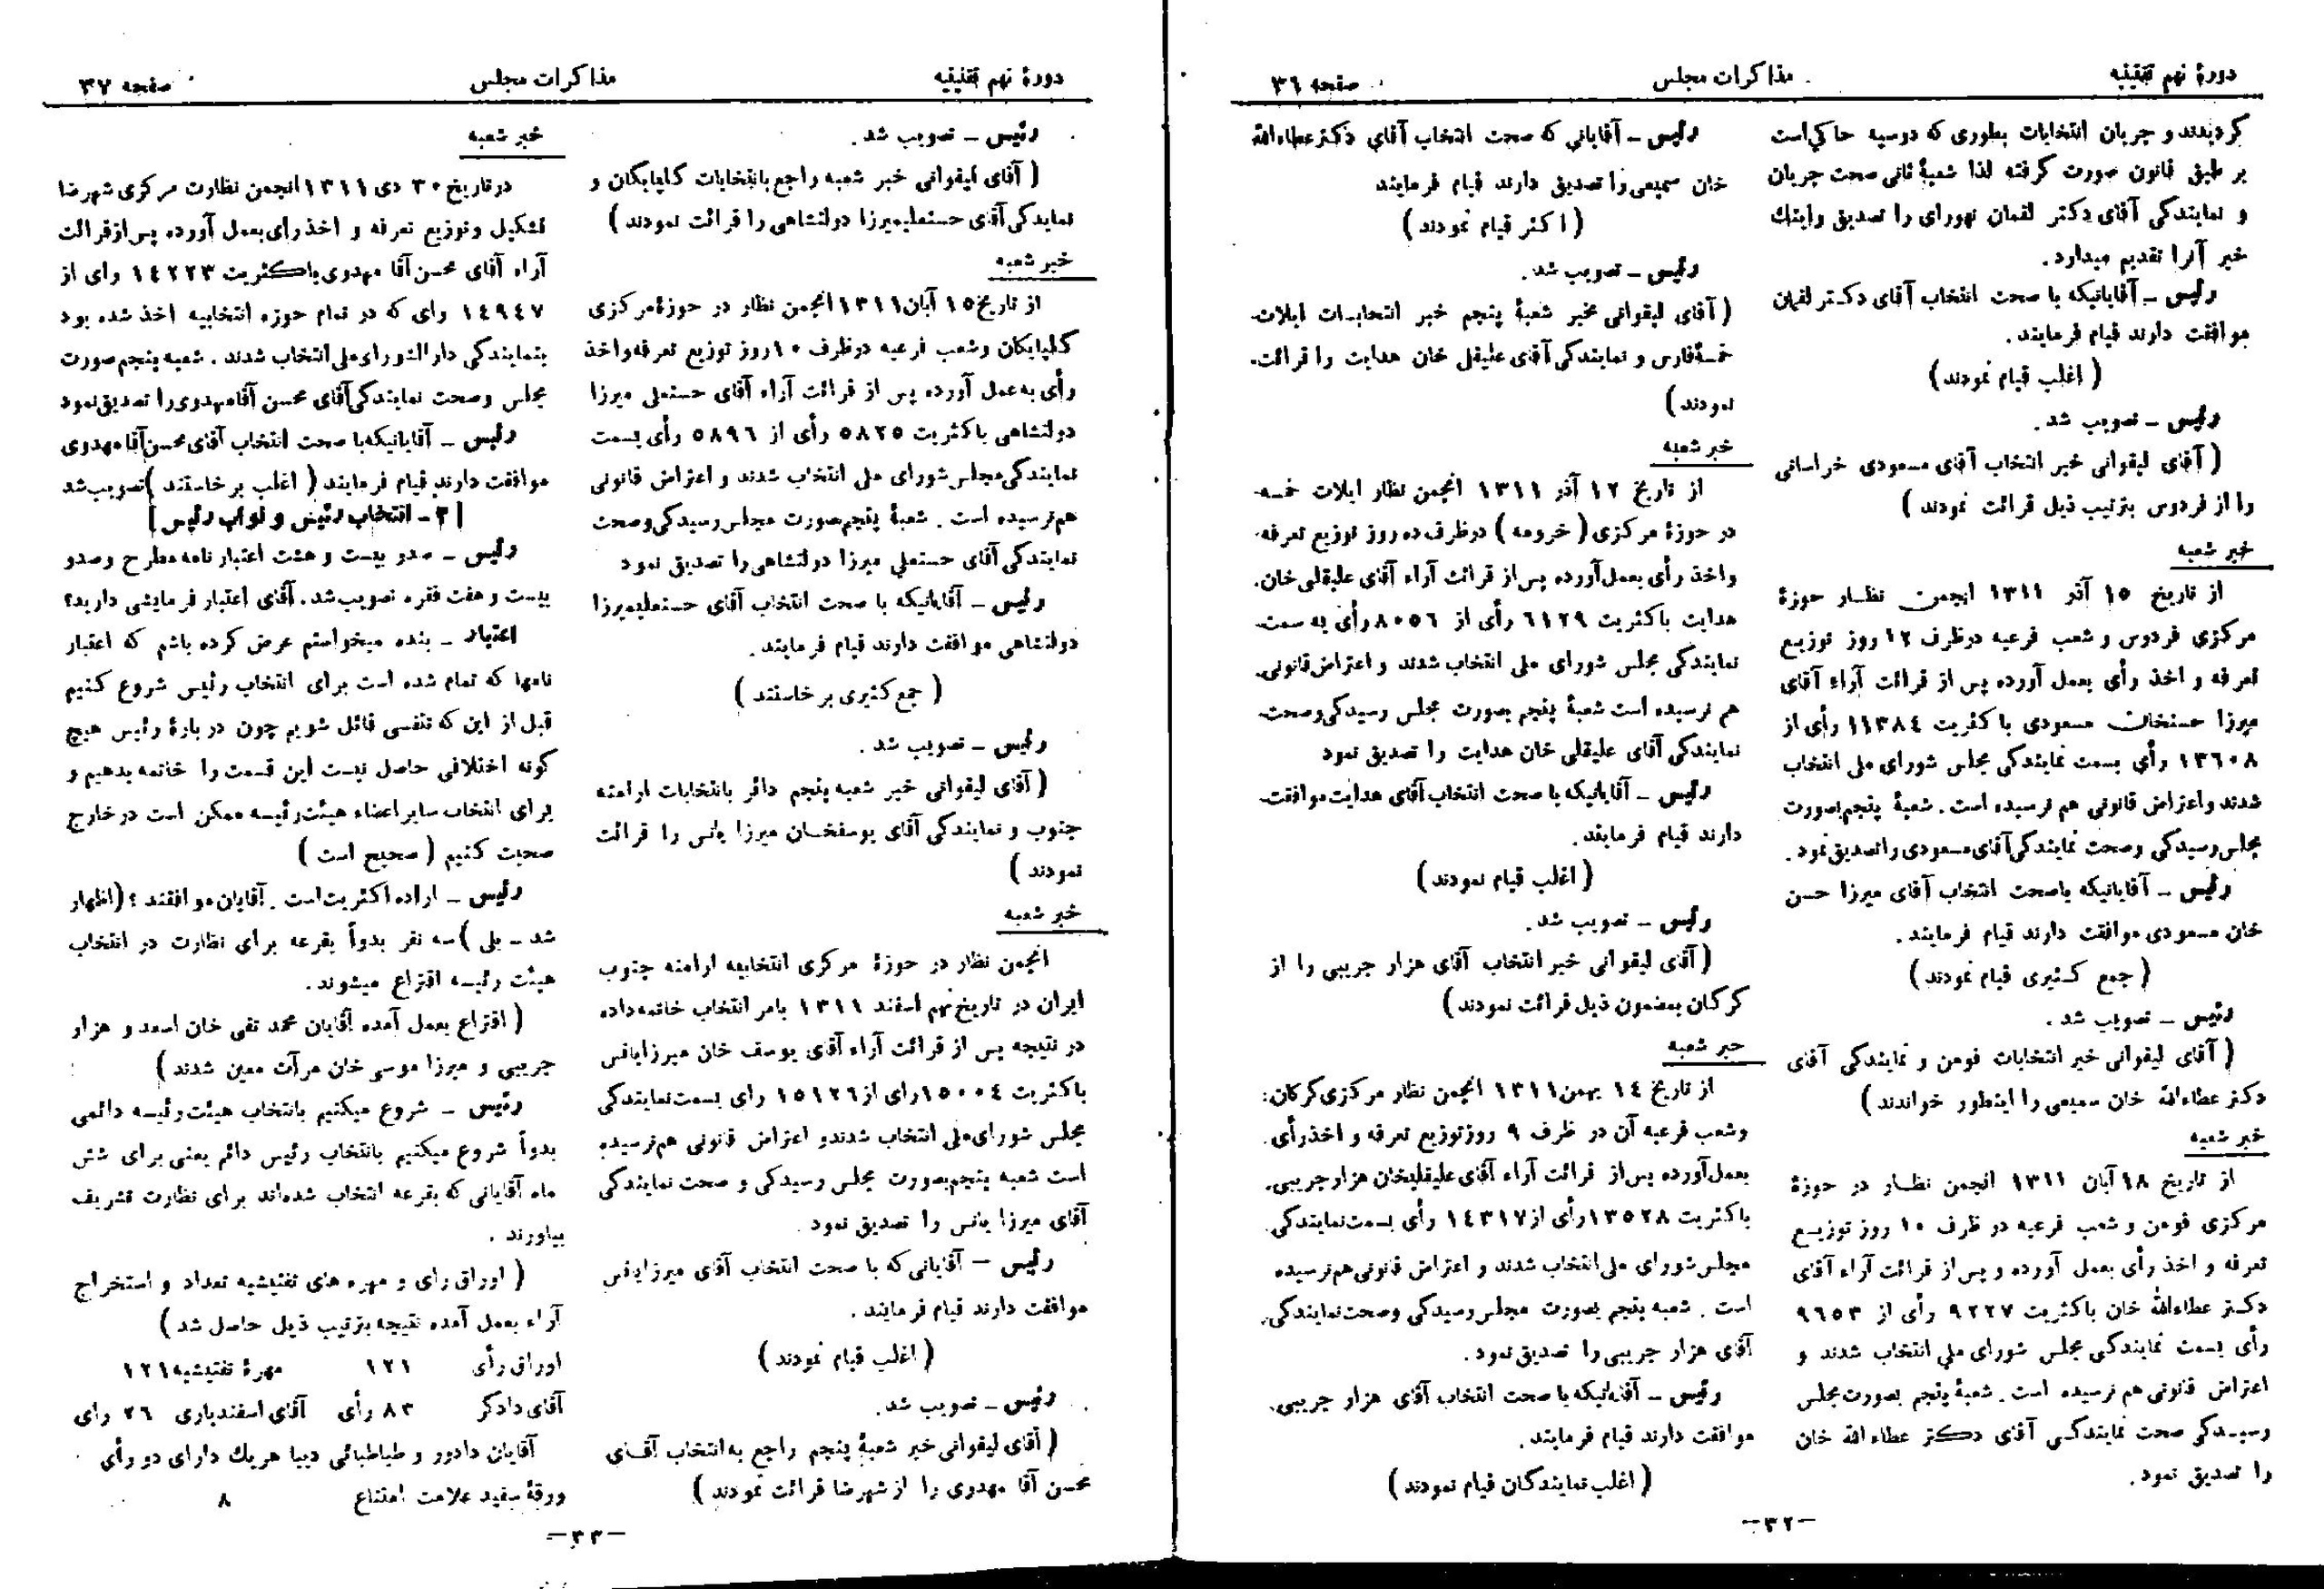 دورهٔ نهم تقنینیه
مذاکرات مجلس
صفحه ۳۶
گردیدند و جریان انتخابات بطوری که دوسیه حاکی است
بر طبق قانون صورت گرفته لذا شعبهٔ ثانی صحت جریان
و نمایندگی آقای دکتر لقمان نهورای را تصدیق و اینك
خبر آنرا تقدیم میدارد.
رئیس ـ آقایانیکه با صحت انتخاب آقای دکتر لقمان
موافقت دارند قیام فرمایند.
( اغلب قیام نمودند )
رئیس ـ تصویب شد.
( آقای لیقوانی خبر انتخاب آقای مسعودی خراسانی
را از فردوس بترتیب ذیل قرائت نمودند )
خبر شعبه
از تاریخ ۱۵ آذر ۱۳۱۱ انجمن نظار حوزهٔ
مرکزی فردوس و شعب فرعیه درظرف ۱۲ روز توزیع
تعرفه و اخذ رأی بعمل آورده پس از قرائت آراء آقای
میرزا حسنخان مسعودی با کثریت ۱۱۳۸۴ رأی از
۱۳۶۰۸ رأی بسمت نمایندگی مجلس شورای ملی انتخاب
شدند و اعتراض قانونی هم نرسیده است. شعبهٔ پنجم بصورت
مجلس رسیدگی وصحت نمایندگی آقای مسعودی را تصدیق نمود.
رئیس ـ آقایانیکه باصحت انتخاب آقای میرزا حسن
خان مسعودی موافقت دارند قیام فرمایند.
( جمع کثیری قیام نمودند )
رئیس ـ تصویب شد.
( آقای لیقوانی خبر انتخابات فومن و نمایندگی آقای
دکتر عطاءالله خان سمیعی را اینطور خواندند )
خبر شعبه
از تاریخ ۱۸ آبان ۱۳۱۱ انجمن نظار در حوزهٔ
مرکزی فومن و شعب فرعیه در ظرف ۱۰ روز توزیع
تعرفه و اخذ رأی بعمل آورده و پس از قرائت آراء آقای
دکتر عطاءالله خان باکثریت ۹۲۲۷ رأی از ۹۶۵۳
رأی بسمت نمایندگی مجلس شورای ملی انتخاب شدند و
اعتراض قانونی هم نرسیده است. شعبهٔ پنجم بصورت مجلس
رسیدگی صحت نمایندگی آقای دکتر عطاءالله خان
را تصدیق نمود.
رئیس ـ آقایانی که صحت انتخاب آقای دکتر عطاءالله
خان سمیعی را تصدیق دارند قیام فرمایند
( اکثر قیام نمودند )
رئیس ـ تصویب شد.
( آقای لیقوانی مخبر شعبهٔ پنجم خبر انتخابات ایلات
خمسهٔ فارس و نمایندگی آقای علیقلی خان هدایت را قرائت
نمودند )
خبر شعبه
از تاریخ ۱۲ آذر ۱۳۱۱ انجمن نظار ایلات خمسه
در حوزهٔ مرکزی ( خرومه ) درظرف ده روز توزیع تعرفه
و اخذ رأی بعمل آورده پس از قرائت آراء آقای علیقلی خان
هدایت باکثریت ۶۱۲۹ رأی از ۸۰۵۶ رأی به سمت
نمایندگی مجلس شورای ملی انتخاب شدند و اعتراض قانونی
هم نرسیده است شعبهٔ پنجم بصورت مجلس رسیدگی وصحت
نمایندگی آقای علیقلی خان هدایت را تصدیق نمود
رئیس ـ آقایانیکه با صحت انتخاب آقای هدایت موافقت
دارند قیام فرمایند.
( اغلب قیام نمودند )
رئیس ـ تصویب شد.
( آقای لیقوانی خبر انتخاب آقای هزار جریبی را از
گرگان بمضمون ذیل قرائت نمودند )
خبر شعبه
از تاریخ ۱۴ بهمن ۱۳۱۱ انجمن نظار مرکزی گرگان
وشعب فرعیه آن در ظرف ۹ روز توزیع تعرفه و اخذ رأی
بعمل آورده پس از قرائت آراء آقای علیقلیخان هزار جریبی
باکثریت ۱۳۵۲۸ رأی از ۱۴۳۱۷ رأی بسمت نمایندگی
مجلس شورای ملی انتخاب شدند و اعتراض قانونی هم نرسیده
است. شعبه پنجم بصورت مجلس رسیدگی وصحت نمایندگی
آقای هزار جریبی را تصدیق نمود.
رئیس ـ آقایانیکه با صحت انتخاب آقای هزار جریبی
موافقت دارند قیام فرمایند.
( اغلب نمایندگان قیام نمودند )
ـ۳۲ـ
دورهٔ نهم تقنینیه
مذاکرات مجلس
صفحه ۳۷
رئیس ـ تصویب شد.
( آقای لیقوانی خبر شعبه راجع بانتخابات گلپایگان و
نمایندگی آقای حسنعلیمیرزا دولتشاهی را قرائت نمودند )
خبر شعبه
از تاریخ ۱۵ آبان ۱۳۱۱ انجمن نظار در حوزهٔ مرکزی
گلپایگان وشعب فرعیه درظرف ۱۰ روز توزیع تعرفه واخذ
رأی به عمل آورده پس از قرائت آراء آقای حسنعلی میرزا
دولتشاهی باکثریت ۵۸۲۵ رأی از ۵۸۹۶ رأی بسمت
نمایندگی مجلس شورای ملی انتخاب شدند و اعتراض قانونی
هم نرسیده است. شعبهٔ پنجم بصورت مجلس رسیدگی وصحت
نمایندگی آقای حسنعلی میرزا دولتشاهی را تصدیق نمود
رئیس ـ آقایانیکه با صحت انتخاب آقای حسنعلیمیرزا
دولتشاهی موافقت دارند قیام فرمایند.
( جمع کثیری برخاستند )
رئیس ـ تصویب شد.
( آقای لیقوانی خبر شعبه پنجم دائر بانتخابات ارامنه
جنوب و نمایندگی آقای یوسفخان میرزا یانس را قرائت
نمودند )
خبر شعبه
انجمن نظار در حوزهٔ مرکزی انتخابیه ارامنه جنوب
ایران در تاریخ نهم اسفند ۱۳۱۱ بامر انتخاب خاتمه داده
در نتیجه پس از قرائت آراء آقای یوسف خان میرزایانس
باکثریت ۱۵۰۰۴ رای از ۱۵۱۲۶ رای بسمت نمایندگی
مجلس شورای ملی انتخاب شدند و اعتراض قانونی هم نرسیده
است شعبه پنجم بصورت مجلس رسیدگی و صحت نمایندگی
آقای میرزا یانس را تصدیق نمود
رئیس ـ آقایانی که با صحت انتخاب آقای میرزایانس
موافقت دارند قیام فرمایند.
( اغلب قیام نمودند )
رئیس ـ تصویب شد.
( آقای لیقوانی خبر شعبهٔ پنجم راجع به انتخاب آقای
محسن آقا مهدوی را از شهرضا قرائت نمودند )
خبر شعبه
درتاریخ ۳۰ دی ۱۳۱۱ انجمن نظارت مرکزی شهرضا
تشکیل وتوزیع تعرفه و اخذ رای بعمل آورده پس از قرائت
آراء آقای محسن آقا مهدوی باکثریت ۱۴۲۲۳ رای از
۱۴۹۴۷ رای که در تمام حوزه انتخابیه اخذ شده بود
بنمایندگی دارالشورای ملی انتخاب شدند. شعبه پنجم صورت
مجلس وصحت نمایندگی آقای محسن آقا مهدوی را تصدیق نمود
رئیس ـ آقایانیکه با صحت انتخاب آقای محسن آقا مهدوی
موافقت دارند قیام فرمایند ( اغلب برخاستند ) تصویب شد
[ ۳ ـ انتخاب رئیس و نواب رئیس ]
رئیس ـ صدو بیست و هشت اعتبار نامه مطرح وصدو
بیست و هفت فقره تصویب شد. آقای اعتبار فرمایشی دارید؟
اعتبار ـ بنده میخواستم عرض کرده باشم که اعتبار
نامها که تمام شده است برای انتخاب رئیس شروع کنیم
قبل از این که تنفسی قائل شویم چون دربارهٔ رئیس هیچ
گونه اختلافی حاصل نیست این قسمت را خاتمه بدهیم و
برای انتخاب سایر اعضاء هیئت رئیسه ممکن است درخارج
صحبت کنیم ( صحیح است )
رئیس ـ اراده اکثریت است. آقایان موافقند؟ ( اظهار
شد ـ بلی ) سه نفر بدواً بقرعه برای نظارت در انتخاب
هیئت رئیسه اقتراع میشوند.
( اقتراع بعمل آمده آقایان محمد تقی خان اسعد و هزار
جریبی و میرزا موسی خان مرآت معین شدند )
رئیس ـ شروع میکنیم بانتخاب هیئت رئیسه دائمی
بدواً شروع میکنیم بانتخاب رئیس دائم یعنی برای شش
ماه آقایانی که بقرعه انتخاب شده‌اند برای نظارت تشریف
بیاورند.
( اوراق رای و مهره های تفتیشیه تعداد و استخراج
آراء بعمل آمده نتیجه بترتیب ذیل حاصل شد )
اوراق رأی ۱۲۱ مهرهٔ تفتیشیه ۱۲۱
آقای دادگر ۸۳ رأی آقای اسفندیاری ۲۶ رای
آقایان دادور و طباطبائی دیبا هریك دارای دو رأی
ورقهٔ سفید علامت امتناع ۸
ـ۳۳ـ